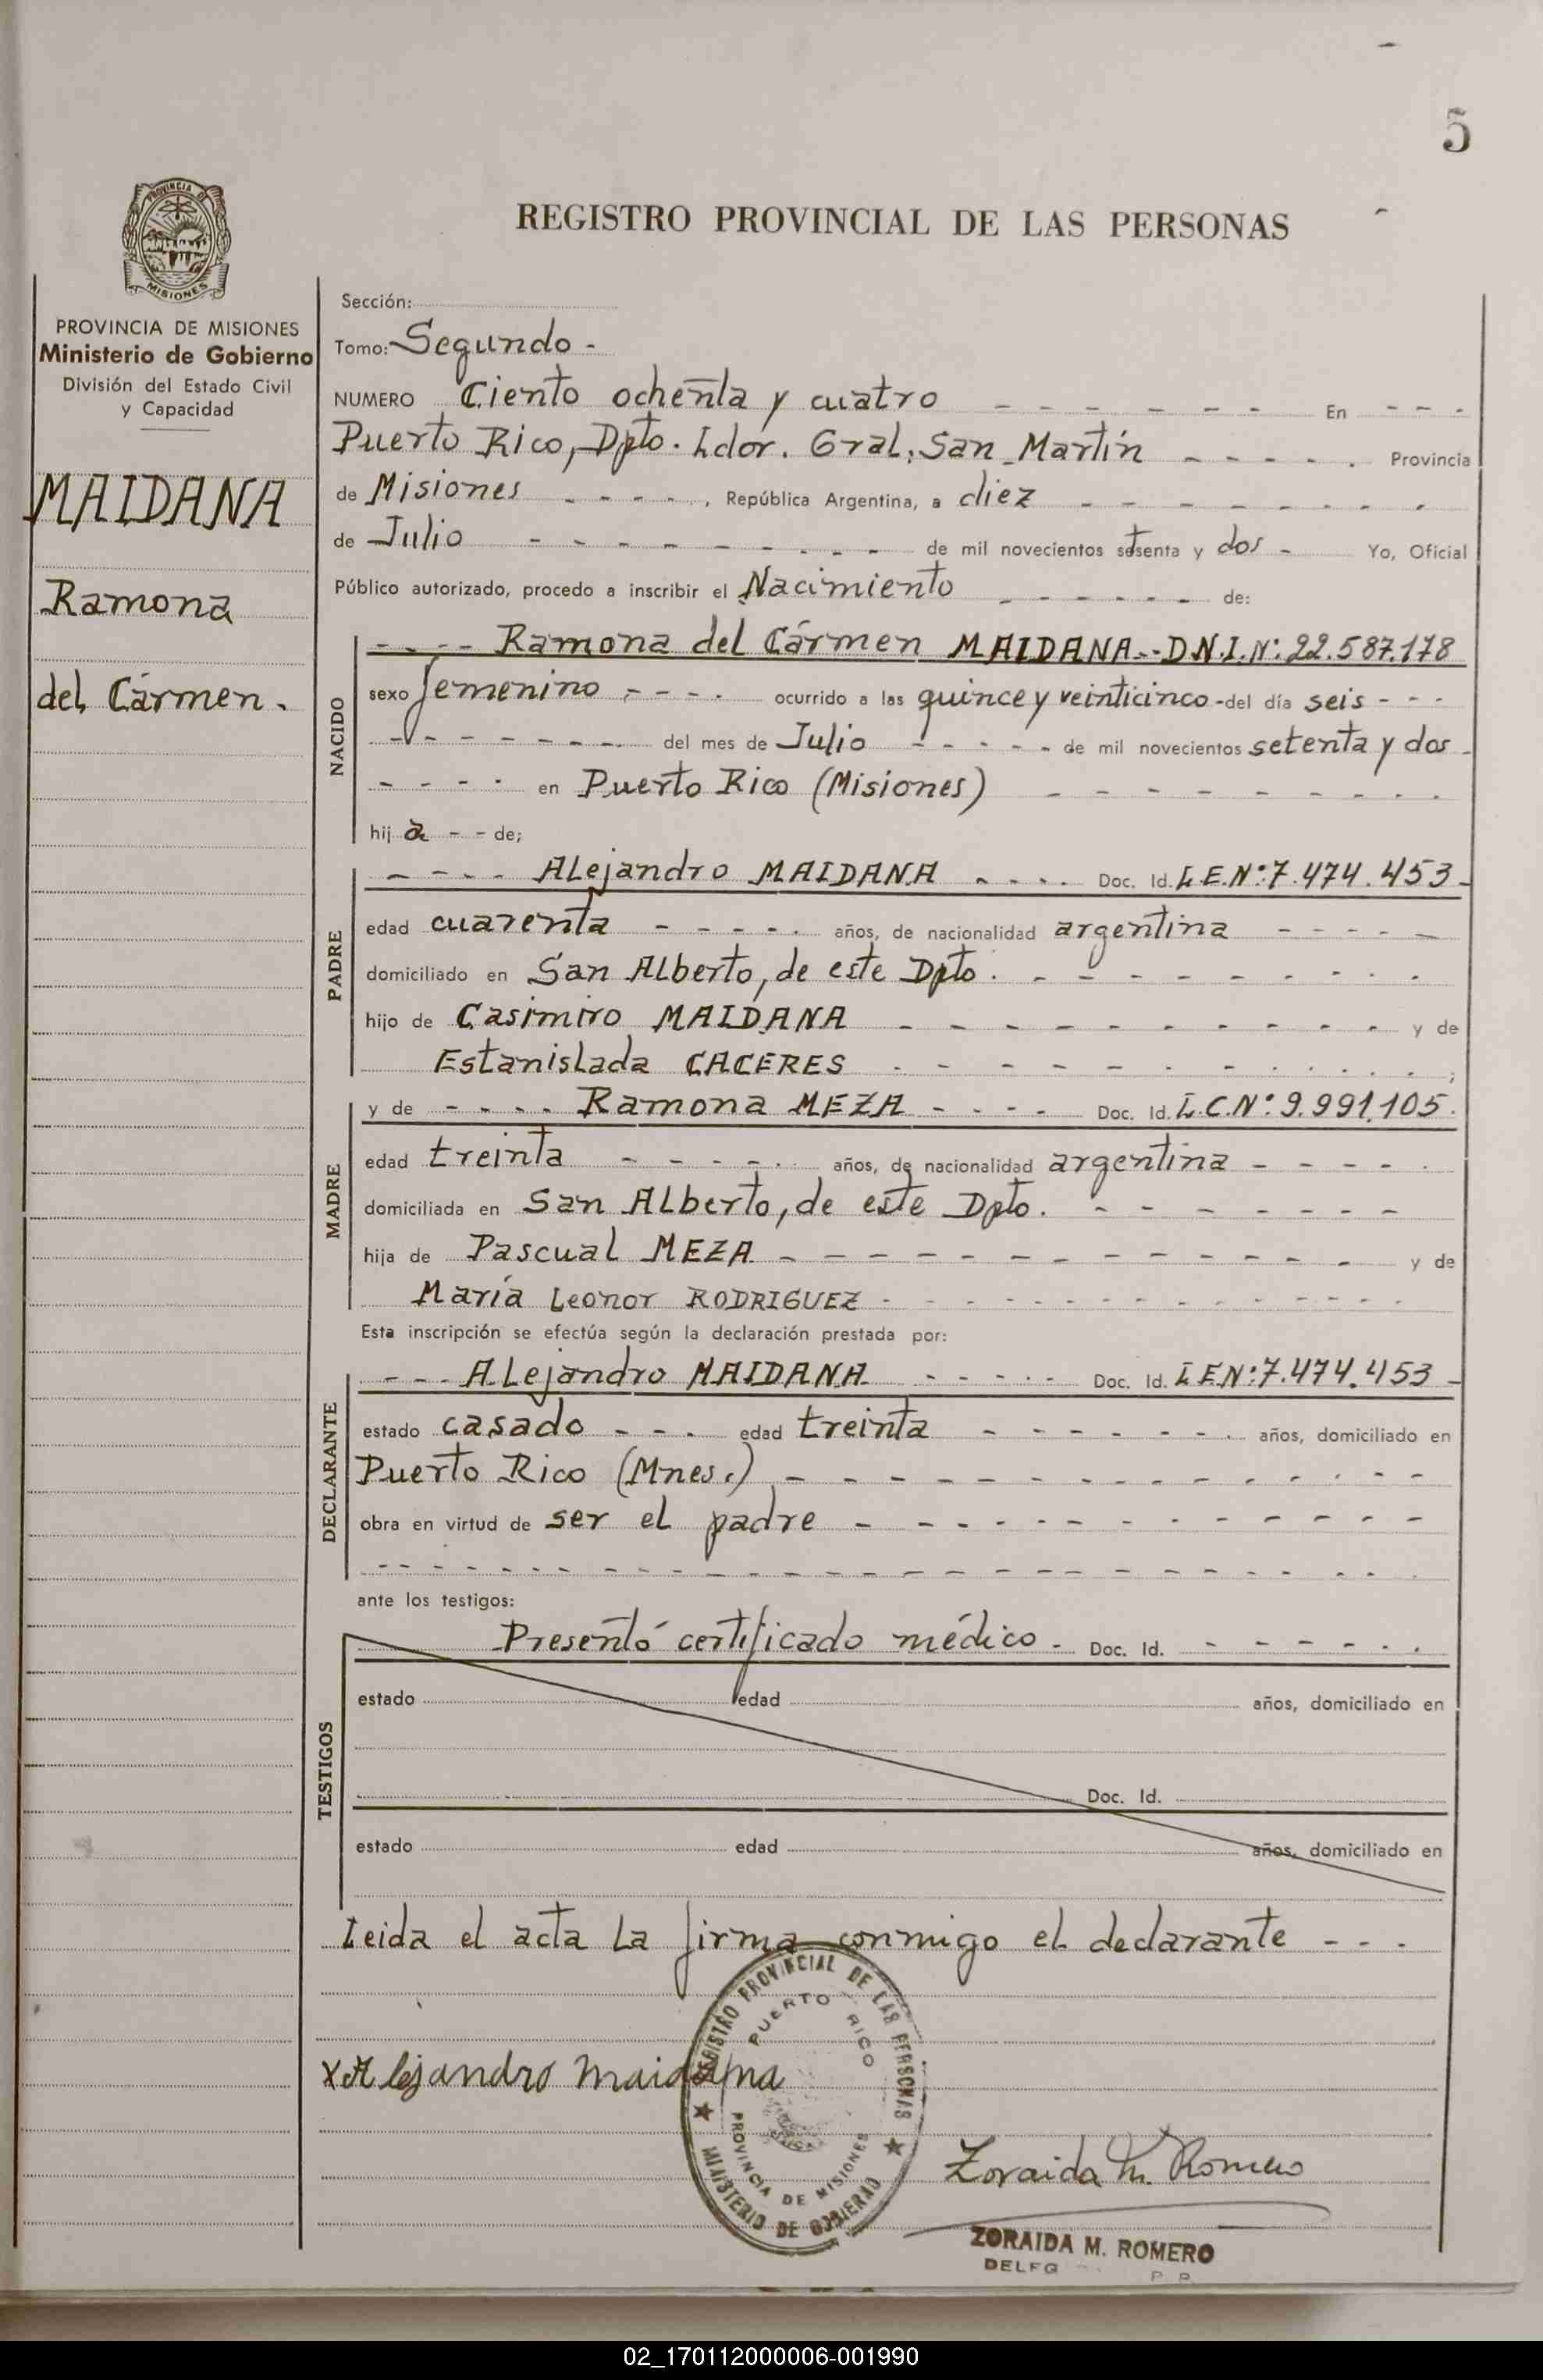 5
PROVINCIA DE
MISIONES
REGISTRO PROVINCIAL DE LAS PERSONAS
PROVINCIA DE MISIONES
Ministerio de Gobierno
División del Estado Civil
y Capacidad
MAIDANA
Ramona
del Cármen.
Sección:
Tomo: Segundo -
NUMERO Ciento ochenta y cuatro - - - - - - - En - - -
Puerto Rico, Dpto. Ldor. Gral. San Martín - - - - - Provincia
de Misiones - - - - -, República Argentina, a diez - - - - - - - -
de Julio - - - - - - - - - de mil novecientos setenta y dos - Yo, Oficial
Público autorizado, procedo a inscribir el Nacimiento - - - - - - de:
- - - - Ramona del Cármen MAIDANA.-- D.N.I. Nº: 22.587.178
NACIDO
sexo femenino - - - - ocurrido a las quince y veinticinco - del día seis - - -
- - - - - - - - del mes de Julio - - - - - de mil novecientos setenta y dos -
- - - - en Puerto Rico (Misiones) - - - - - - - - -
hij a - - de;
- - - - Alejandro MAIDANA - - - - Doc. Id. L.E.Nº: 7.474.453 -
PADRE
edad cuarenta - - - - - años, de nacionalidad argentina - - - - -
domiciliado en San Alberto, de este Dpto. - - - - - - - - -
hijo de Casimiro MAIDANA - - - - - - - - - - y de
Estanislada CACERES - - - - - - - - - - - ;
y de - - - - Ramona MEZA - - - - Doc. Id. L.C.Nº: 9.991.105.
MADRE
edad treinta - - - - - años, de nacionalidad argentina - - - - -
domiciliada en San Alberto, de este Dpto. - - - - - - -
hija de Pascual MEZA - - - - - - - - - - - - - y de
María Leonor RODRIGUEZ - - - - - - - - - - - - -
Esta inscripción se efectúa según la declaración prestada por:
- - - Alejandro MAIDANA - - - - - Doc. Id. L.E.N: 7.474.453 -
DECLARANTE
estado casado - - - edad treinta - - - - - - - años, domiciliado en
Puerto Rico (Mnes.) - - - - - - - - - - - - - - - -
obra en virtud de ser el padre - - - - - - - - - - - - - -
- - - - - - - - - - - - - - - - - - - - - - - - - - -
ante los testigos:
Presentó certificado médico - Doc. Id. - - - - - -
TESTIGOS
estado edad años, domiciliado en
Doc. Id.
estado edad años, domiciliado en
Leida el acta la firma conmigo el declarante - - -
REGISTRO PROVINCIAL DE LAS PERSONAS
PUERTO RICO
PROVINCIA DE MISIONES
MINISTERIO DE GOBIERNO
x Alejandro Maidana
Zoraida M. Romero
ZORAIDA M. ROMERO
02_170112000006-001990